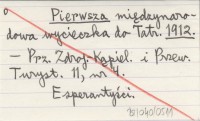 Pierwsza międzynaro-
dowa wycieczka do Tatr. 1912.
— Prz. Zdroj. Kąpiel. i Przew.
Turyst. 11, nr 4.
Esperantyści.